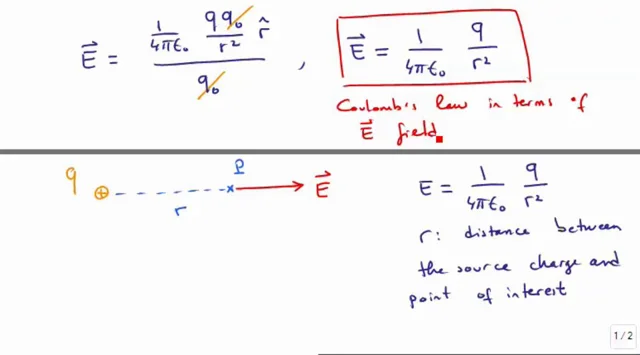 E⃗ = (1/4πε₀ qq₀/r² r̂)/q₀ , E⃗ = 1/4πε₀ q/r²
Coulomb's law in terms of
E⃗ field
q ⊕ r P E⃗
E = 1/4πε₀ q/r²
r: distance between
the source charge and
point of interest
1/2